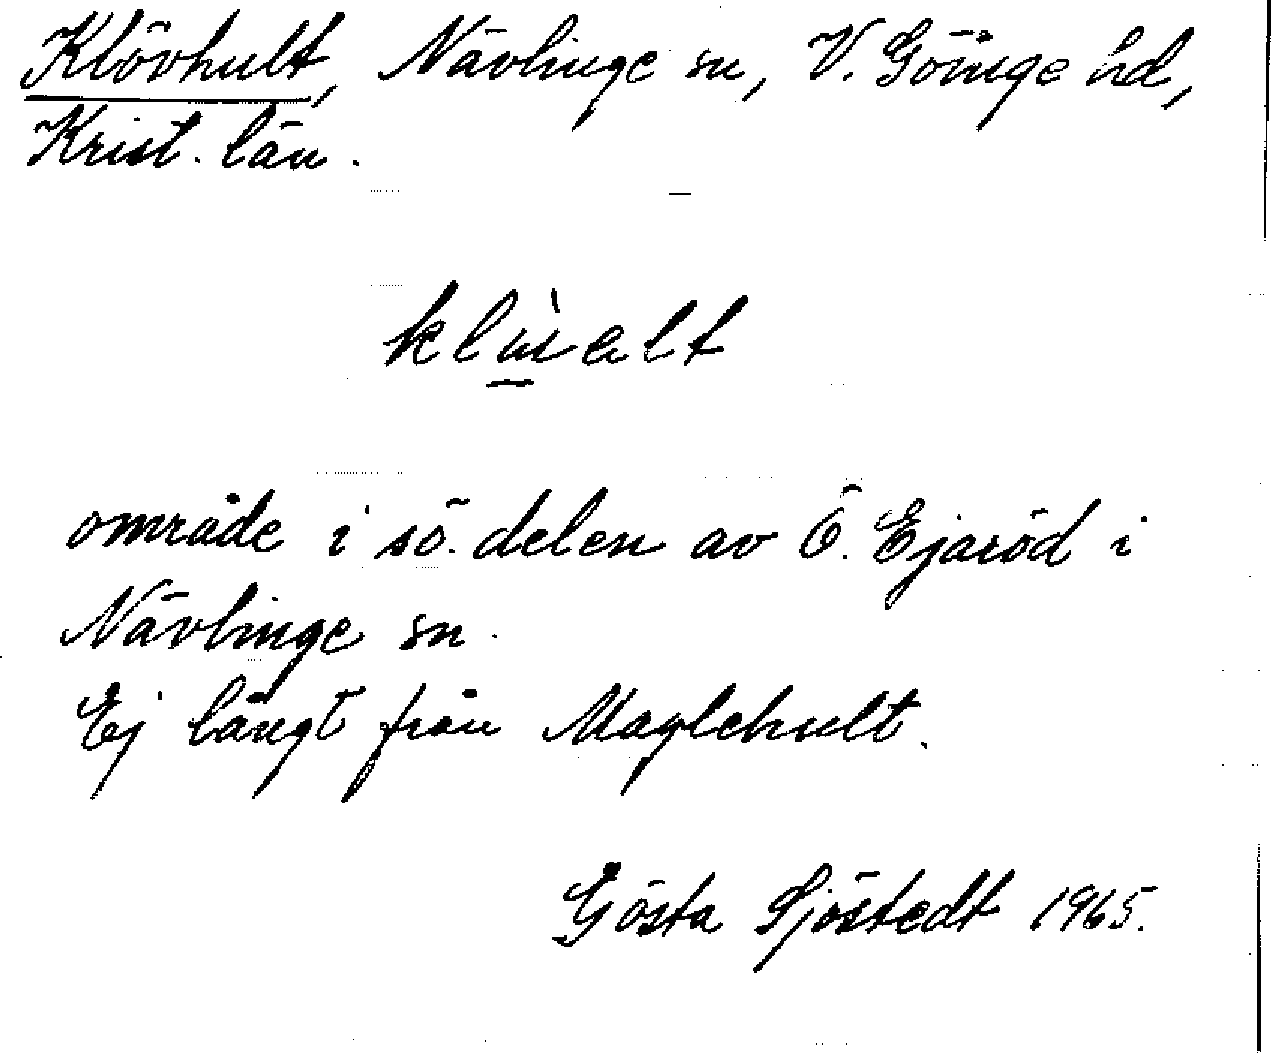 Klövhult, Nävlinge sn, V. Göinge hd,
Krist. län.
område i sö. delen av Ö. Ejaröd i
Nävlinge sn.
Ej långt från Maglehult.
Gösta Sjöstedt 1965.